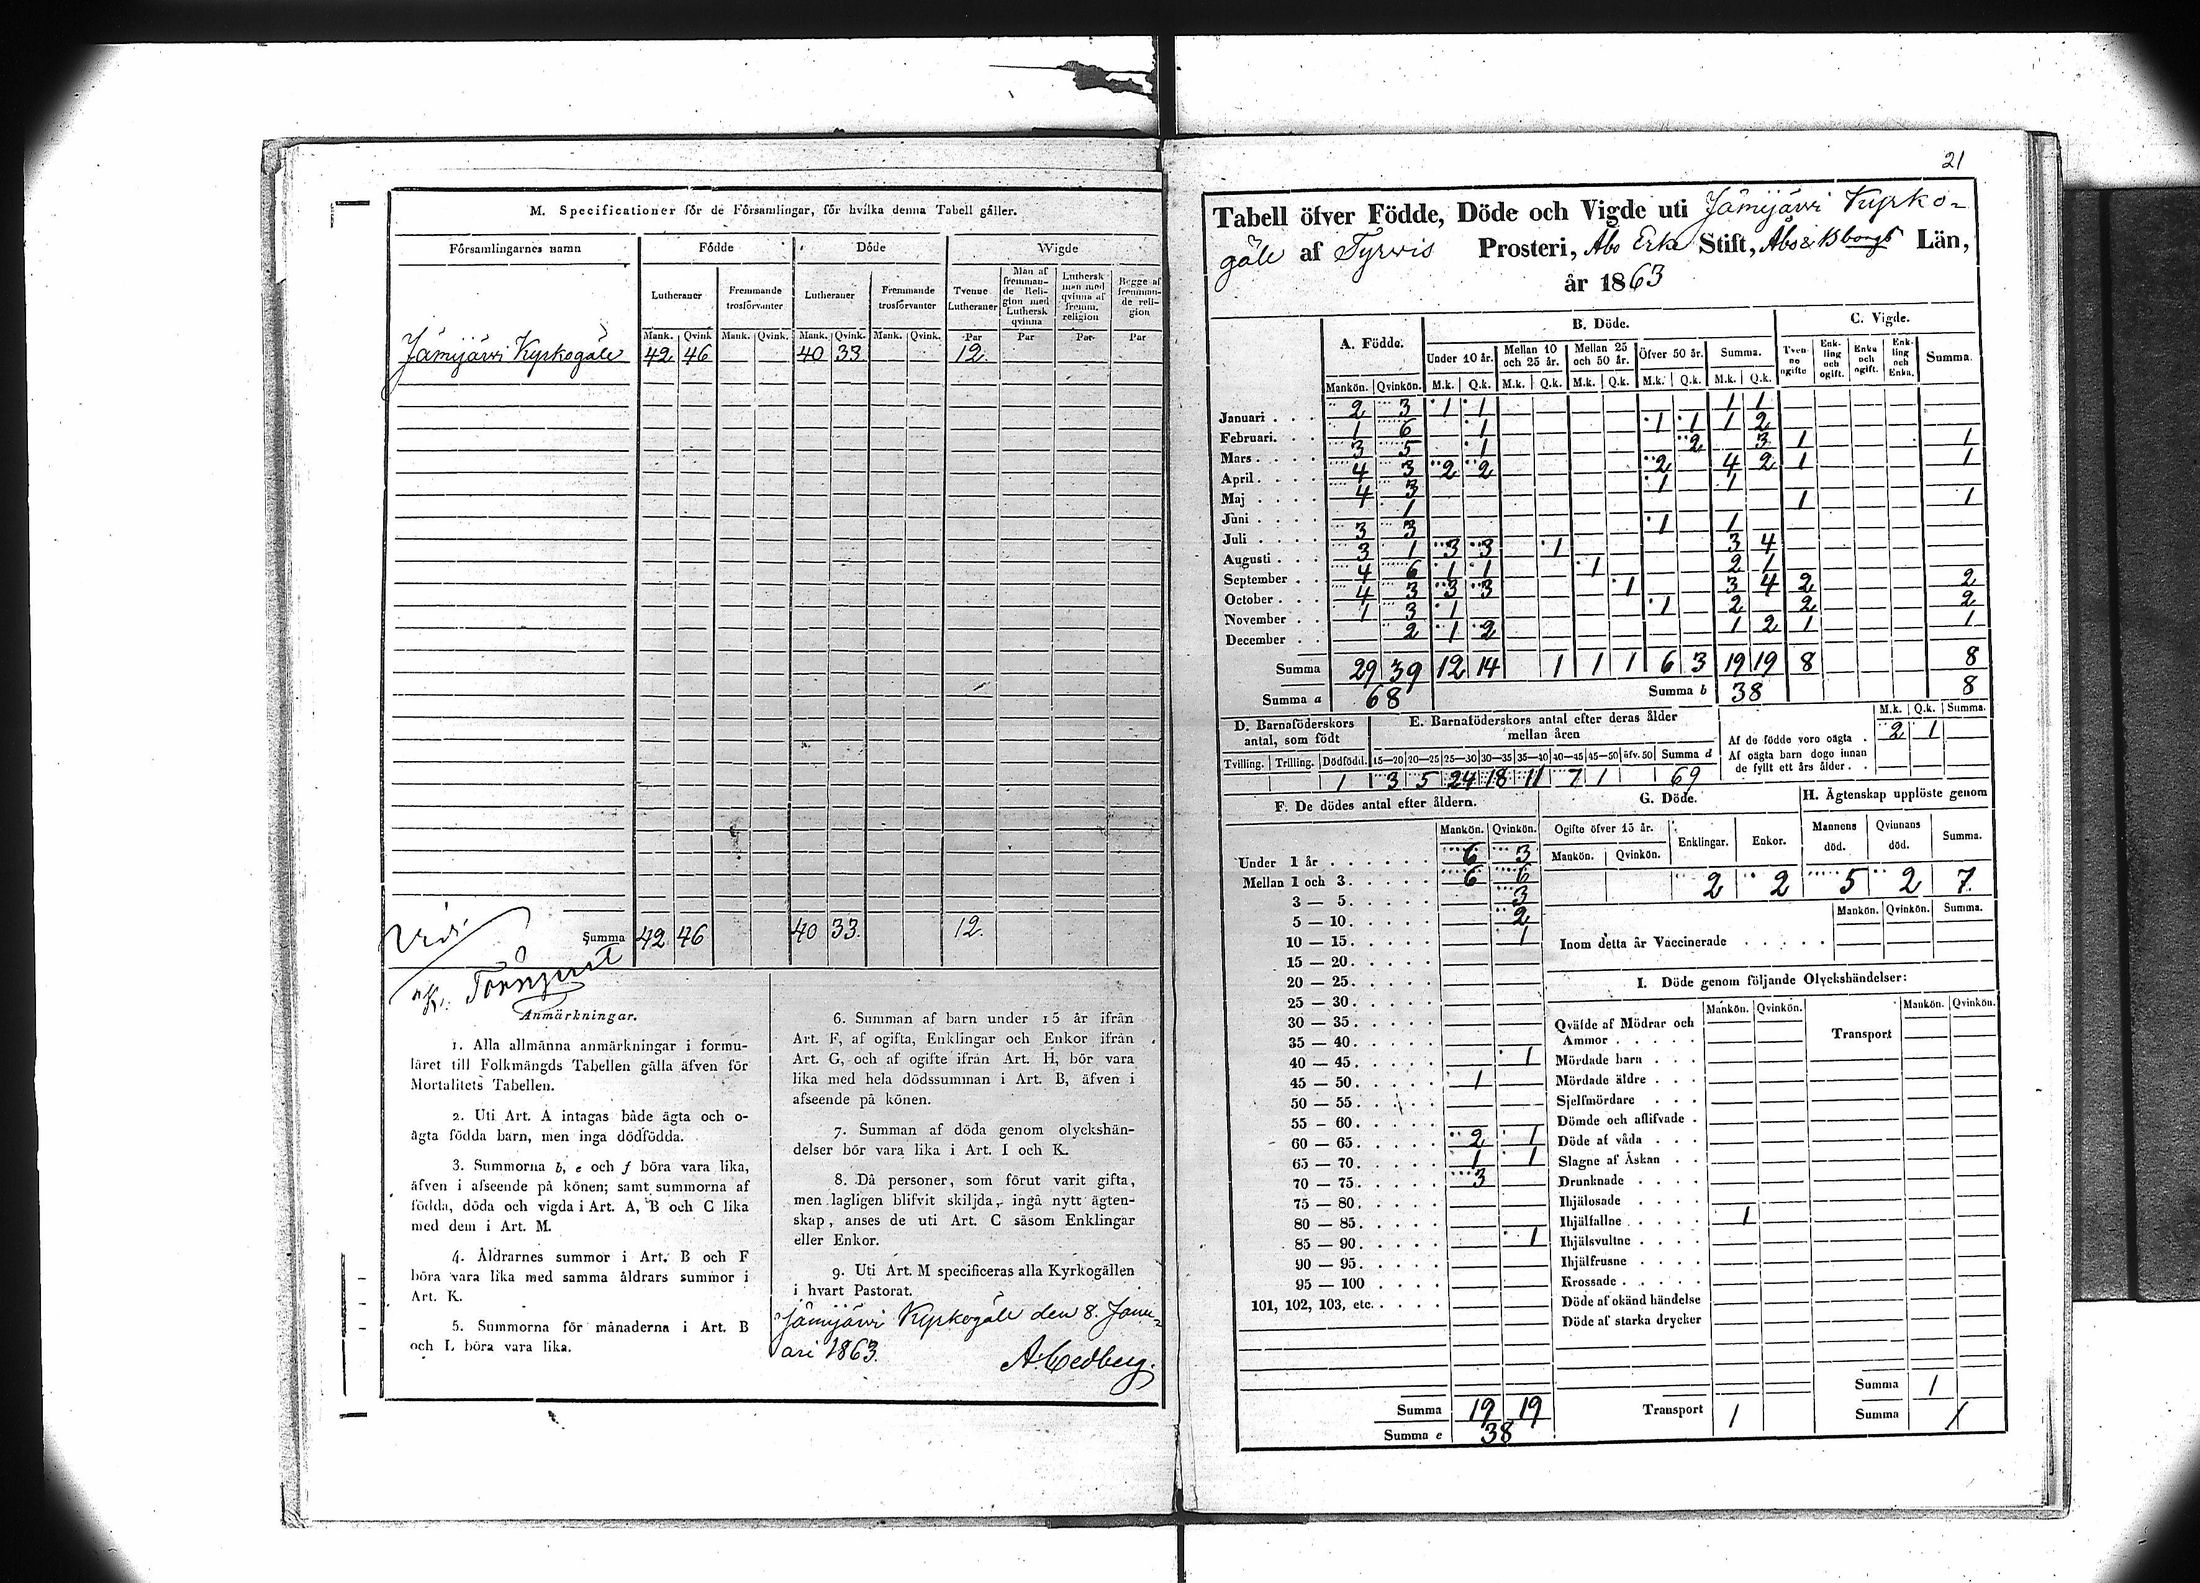 M. Specificationer för de Församlingar, för hvilka denna Tabell gäller.
Församlingarnes namn Födde Döde Wigde
Lutheraner Fremmande trosförvanter Lutheraner Fremmande trosförvanter Tvenne Lutheraner Man af fremmande Religion med Luthersk qvinna Luthersk man med qvinna af fremm. religion Begge af fremmande religion
Mank. Qvink. Mank. Qvink. Mank. Qvink. Mank. Qvink. Par Par Par Par
Jämijärvi Kyrkogäle 42 46 40 33 12.
Summa 42 46 40 33. 12.
Anmärkningar.
1. Alla allmänna anmärkningar i formu-
läret till Folkmängds Tabellen gälla äfven för
Mortalitets Tabellen.
2. Uti Art. A intagas både ägta och o-
ägta födda barn, men inga dödfödda.
3. Summorna b, e och f böra vara lika,
äfven i afseende på könen; samt summorna af
födda, döda och vigda i Art. A, B och C lika
med dem i Art. M.
4. Åldrarnes summor i Art. B och F
böra vara lika med samma åldrars summor i
Art. K.
5. Summorna för månaderna i Art. B
och L böra vara lika.
6. Summan af barn under 15 år ifrån
Art. F, af ogifta, Enklingar och Enkor ifrån
Art. G, och af ogifte ifrån Art. H, bör vara
lika med hela dödssumman i Art. B, äfven i
afseende på könen.
7. Summan af döda genom olyckshän-
delser bör vara lika i Art. I och K.
8. Då personer, som förut varit gifta,
men lagligen blifvit skiljda, ingå nytt ägten-
skap, anses de uti Art. C såsom Enklingar
eller Enkor.
9. Uti Art. M specificeras alla Kyrkogällen
i hvart Pastorat.
Jämijärvi Kyrkogäle den 8. Janu-
ari 1863.
A. Cedberg.
21
Tabell öfver Födde, Döde och Vigde uti Jämijärvi Kyrko-
gäle af Tyrvis Prosteri, Åbo Erke Stift, Åbo & B borgs Län,
år 1863
A. Födde. B. Döde. C. Vigde.
Under 10 år. Mellan 10 och 25 år. Mellan 25 och 50 år. Öfver 50 år. Summa. Tvenne ogifte Enkling och ogift. Enka och ogift. Enkling och Enka. Summa.
Mankön. Qvinkön. M.k. Q.k. M.k. Q.k. M.k. Q.k. M.k. Q.k. M.k. Q.k.
Januari . . . 2 3 1 1 1 1
Februari. . . 1 6 1 1 1 1 2
Mars . . . . 3 5 1 2 3 1 1
April . . . . 4 3 2 2 2 4 2 1 1
Maj . . . . 4 3 1 1
Juni . . . . 1 1 1
Juli . . . . 3 3 1 1
Augusti . . . 3 1 3 3 1 3 4
September . . 4 6 1 1 1 2 1
October . . . 4 3 3 3 1 3 4 2 2
November . . 1 3 1 1 2 2 2
December . . 2 1 2 1 2 1 1
Summa 29 39 12 14 1 1 1 6 3 19 19 8 8
Summa a 68 Summa b 38 8
D. Barnaföderskors antal, som födt E. Barnaföderskors antal efter deras ålder mellan åren
M.k. Q.k. Summa.
Af de födde voro oägta . 2 1
Af oägta barn dogo innan
de fyllt ett års ålder . .
Tvilling. Trilling. Dödfödd. 15—20 20—25 25—30 30—35 35—40 40—45 45—50 öfv. 50 Summa d
1 3 5 24 18 11 7 1 69
F. De dödes antal efter åldern.
Mankön. Qvinkön.
Under 1 år . . . . . . 6 3
Mellan 1 och 3. . . . . 6 6
3 — 5. . . . . 3
5 — 10. . . . . 2
10 — 15. . . . . 1
15 — 20. . . . .
20 — 25. . . . .
25 — 30. . . . .
30 — 35. . . . .
35 — 40. . . . .
40 — 45. . . . . 1
45 — 50. . . . . 1
50 — 55. . . . .
55 — 60. . . . .
60 — 65. . . . . 2 1
65 — 70. . . . . 1 1
70 — 75. . . . . 3
75 — 80. . . . .
80 — 85. . . . .
85 — 90. . . . . 1
90 — 95. . . . .
95 — 100 . . . .
101, 102, 103, etc. . . . .
Summa 19 19
Summa e 38
G. Döde.
Ogifte öfver 15 år. Enklingar. Enkor.
Mankön. Qvinkön.
2 2
H. Ägtenskap upplöste genom
Mannens död. Qvinnans död. Summa.
5 2 7
Mankön. Qvinkön. Summa.
Inom detta år Vaccinerade . . . . .
I. Döde genom följande Olyckshändelser:
Mankön. Qvinkön. Mankön. Qvinkön.
Qväfde af Mödrar och
Ammor . . . . . Transport
Mördade barn . . .
Mördade äldre . . .
Sjelfmördare . . .
Dömde och aflifvade .
Döde af våda . . .
Slagne af Åskan . .
Drunknade . . . .
Ihjälosade . . . .
Ihjälfallne . . . . . 1
Ihjälsvultne . . . .
Ihjälfrusne . . . .
Krossade . . . . .
Döde af okänd händelse
Döde af starka drycker
Summa 1
Transport 1 Summa 1